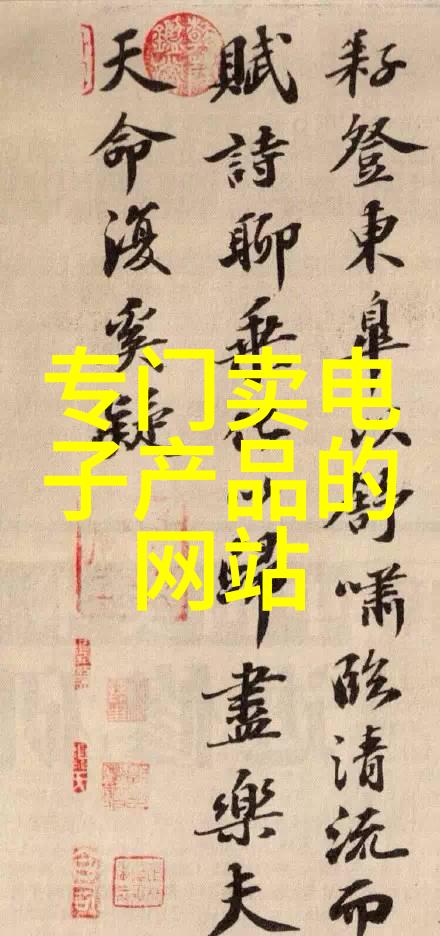 耔登東皋以舒嘯臨清流而
賦詩聊乘化以歸盡樂夫
天命復奚疑
专门卖电
子产品的
网站